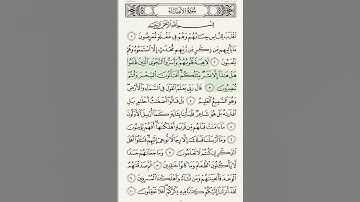 سُورَةُ الأَنبِيَاءِ
بِسْمِ ٱللَّهِ ٱلرَّحْمَٰنِ ٱلرَّحِيمِ
ٱقْتَرَبَ لِلنَّاسِ حِسَابُهُمْ وَهُمْ فِي غَفْلَةٍ مُّعْرِضُونَ ١
مَا يَأْتِيهِم مِّن ذِكْرٍ مِّن رَّبِّهِم مُّحْدَثٍ إِلَّا ٱسْتَمَعُوهُ وَهُمْ
يَلْعَبُونَ ٢ لَاهِيَةً قُلُوبُهُمْ وَأَسَرُّوا۟ ٱلنَّجْوَى ٱلَّذِينَ ظَلَمُوا۟
هَلْ هَٰذَا إِلَّا بَشَرٌ مِّثْلُكُمْ أَفَتَأْتُونَ ٱلسِّحْرَ وَأَنتُمْ
تُبْصِرُونَ ٣ قَالَ رَبِّي يَعْلَمُ ٱلْقَوْلَ فِي ٱلسَّمَاءِ وَٱلْأَرْضِ
وَهُوَ ٱلسَّمِيعُ ٱلْعَلِيمُ ٤ بَلْ قَالُوا۟ أَضْغَٰثُ أَحْلَٰمٍ بَلِ
ٱفْتَرَىٰهُ بَلْ هُوَ شَاعِرٌ فَلْيَأْتِنَا بِـَٔايَةٍ كَمَا أُرْسِلَ ٱلْأَوَّلُونَ ٥
مَا ءَامَنَتْ قَبْلَهُم مِّن قَرْيَةٍ أَهْلَكْنَٰهَا أَفَهُمْ يُؤْمِنُونَ ٦
وَمَا أَرْسَلْنَا قَبْلَكَ إِلَّا رِجَالًا نُّوحِي إِلَيْهِمْ فَسْـَٔلُوا۟ أَهْلَ
ٱلذِّكْرِ إِن كُنتُمْ لَا تَعْلَمُونَ ٧ وَمَا جَعَلْنَٰهُمْ جَسَدًا
لَّا يَأْكُلُونَ ٱلطَّعَامَ وَمَا كَانُوا۟ خَٰلِدِينَ ٨ ثُمَّ صَدَقْنَٰهُمُ
ٱلْوَعْدَ فَأَنجَيْنَٰهُمْ وَمَن نَّشَاءُ وَأَهْلَكْنَا ٱلْمُسْرِفِينَ ٩
لَقَدْ أَنزَلْنَا إِلَيْكُمْ كِتَٰبًا فِيهِ ذِكْرُكُمْ أَفَلَا تَعْقِلُونَ ١٠